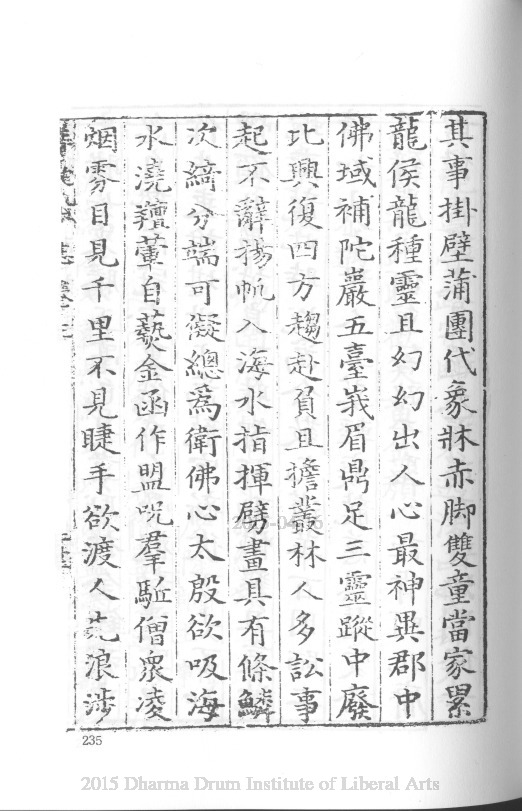 其事掛壁蒲團代象牀赤脚雙童當家累
龍侯龍種靈且幻幻出人心最神異郡中
佛域補陀巖五臺峩眉鼎足三靈蹤中廢
比興復四方趨赴負且擔叢林人多訟事
起不辭揚帆入海水指揮劈畫具有條鱗
次綺分端可儗總爲衛佛心太殷欲吸海
水澆羶葷自爇金函作盟呪羣駈僧衆凌
烟雰目見千里不見睫手欲渡人先浪涉
235
2015 Dharma Drum Institute of Liberal Arts